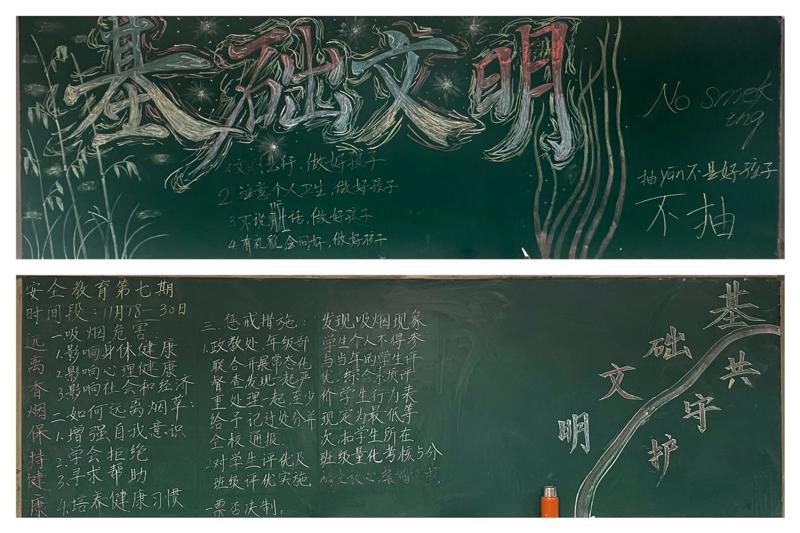 基础文明
行,做好孩子
2.注意个人卫生,做好孩子
3.不说脏话,做好孩子
4.有礼貌会问好,做好孩子
No smok
ing
抽yān不是好孩子
不抽
安全教育第七期
时间段:11月18-30日
远离香烟保持健康
一吸烟危害
1.影响身体健康
2.影响心理健康
3.影响社会和经济
二如何远离烟草:
1.增强自我意识
2.学会拒绝
3.寻求帮助
4.培养健康习惯
三.惩戒措施:
1.政教处.年级部
联合开展常态化
督查发现一起严
重处理一起至少
给予记过处分并
全校通报.
2.对学生评优及
班级评优实施.
一票否决制.
发现吸烟现象
学生个人不得参
与当年的学生评
优.综合素质评
价学生行为表
现灰为最低等
次,扣学生所在
班级量化考核与分
基础文明
共守护